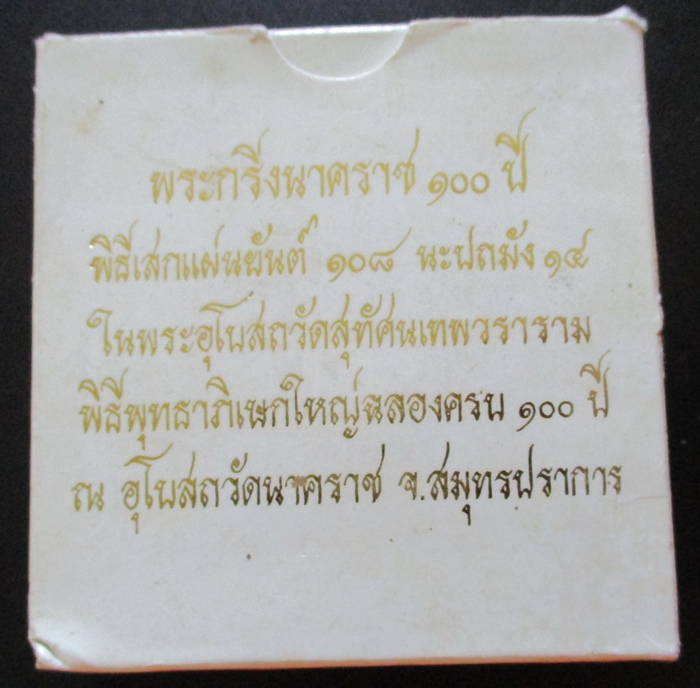 พระกริ่งนาคราช ๑๐๐ ปี
พิธีเสกแผ่นยันต์ ๑๐๘ นะปถมัง ๑๔
ในพระอุโบสถวัดสุทัศนเทพวราราม
พิธีพุทธาภิเษกใหญ่ฉลองครบ ๑๐๐ ปี
ณ อุโบสถวัดนาคราช จ.สมุทรปราการ